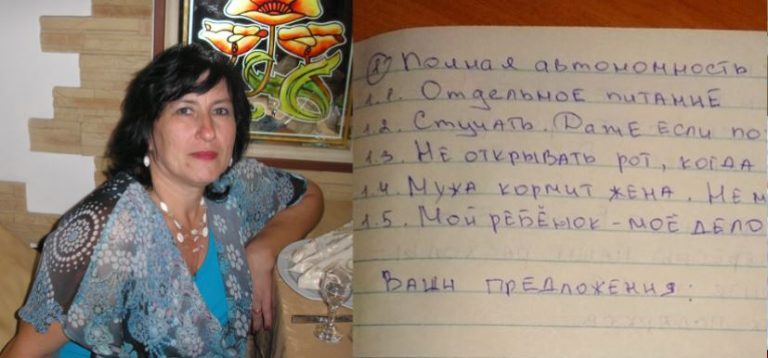 1) Полная автономность
1.1. Отдельное питание
1.2. Стучать. Даже если по
1.3. Не открывать рот, когда
1.4. Мужа кормит жена. Не м
1.5. Мой ребёнок - моё дело
Ваши предложения: